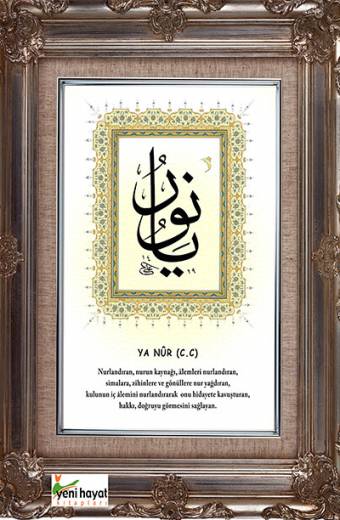 يا نور
١٤ ١٩
YA NÛR (C.C)
Nurlandıran, nurun kaynağı, âlemleri nurlandıran,
simalara, zihinlere ve gönüllere nur yağdıran,
kulunun iç âlemini nurlandırarak onu hidayete kavuşturan,
hakkı, doğruyu görmesini sağlayan.
yeni hayat
kitapları